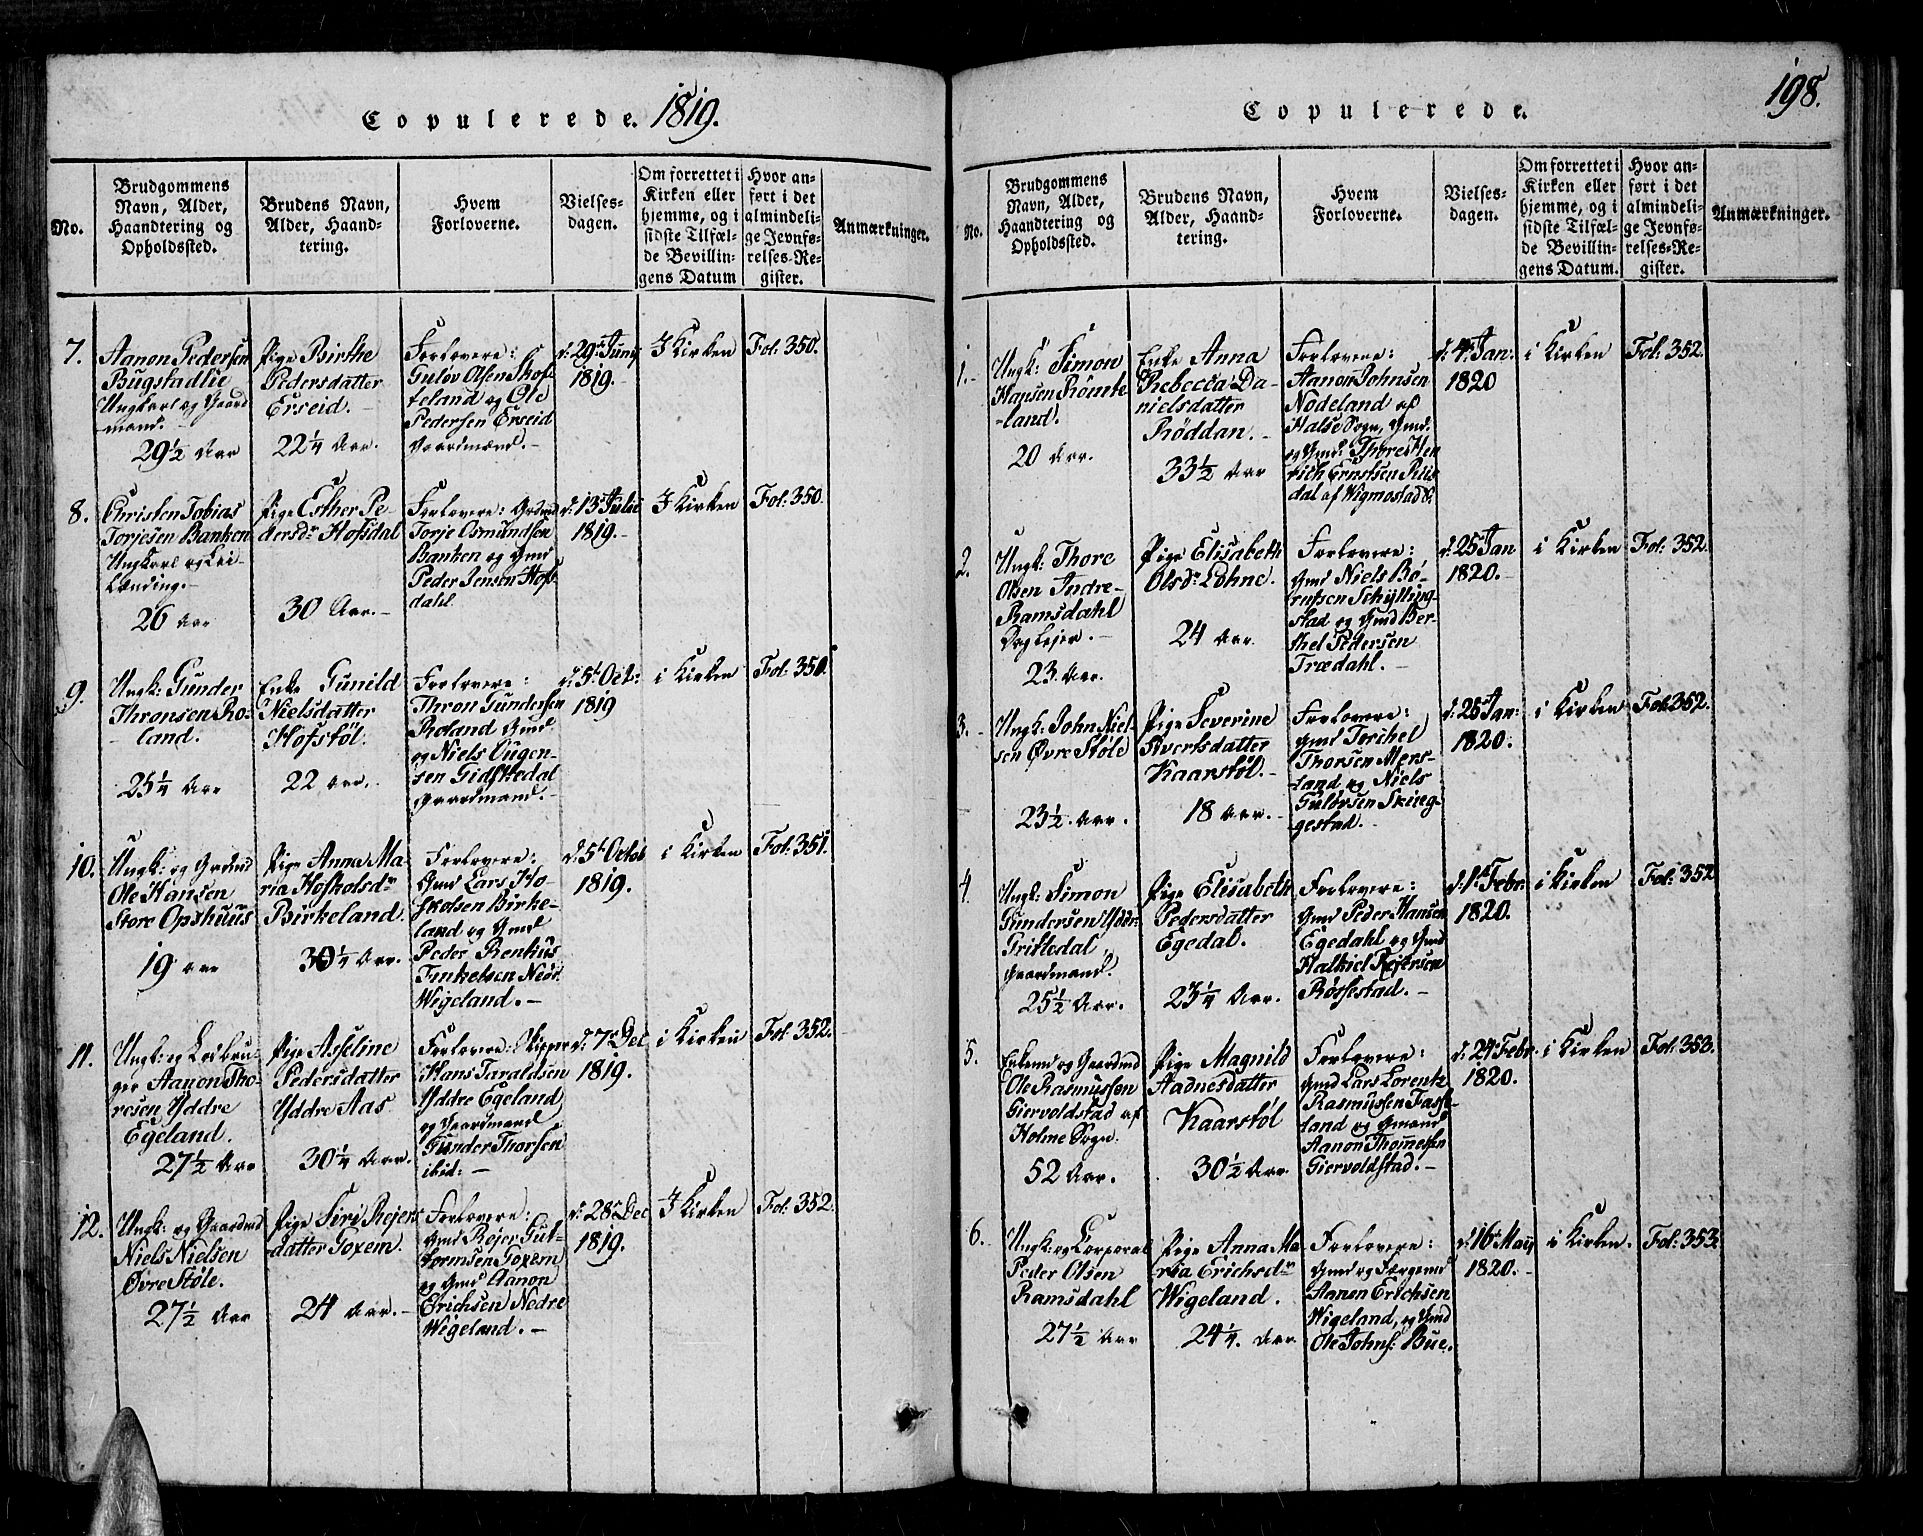 Copulerede. 1819.
No.
Brudgommens
Navn, Alder,
Haandtering og
Opholdssted.
Brudens Navn,
Alder, Haand-
tering.
Hvem
Forloverne.
Vielses-
dagen.
Om forrettet i
Kirken eller
hjemme, og i
sidste Tilfæl-
de Bevillin-
gens Datum
Hvor an-
ført i det
almindeli-
ge Jevnfø-
relses-Re-
gister.
Anmærkninger.
7.
Aanon Pedersen
Bugstadlie
Ungkarl og Gaard
mand.
29½ Aar
Pige Birthe
Pedersdatter
Erseid.
22¼ Aar.
Forlovere:
Guløv Olsen
teland og Ole
Pedersen Erseid
Gaardmænd.
d: 29de Juny
1819.
I Kirken
Fol: 350.
8.
Christen Tobias
Torjesen Banken
Ungkarl og Lei
lænding.
26 Aar
Pige Esther Pe-
dersdr Hofsdal
30 Aar.
Forlovere: Grdmd
Torje Osmundsen
Banken og Gmd
Peder Jensen Hofs
dahl.
d: 13de Julii
1819.
I Kirken
Fol: 350.
9.
Ungk: Gunder
Thronsen Ro-
land.
25¼ Aar
Enke Gunild
Nielsdatter
Hofstøl.
22 Aar.
Forlovere:
Thron Gundersen
Roland Gmd
og Niels Ougen-
sen Gidskedal
Gaardmand.
d: 5te Oct:
1819
i Kirken
Fol: 350.
10.
Ungk: og Grdmd
Ole Hansen
Store Opshuus
19 Aar
Pige Anna Ma
ria Hofkolsdr
Birkeland.
30¼ Aar.
Forlovere:
Gmd Lars Ho-
skolsen Birke-
land og Gmd
Peder Rentius
Finkelsen Nedr
Wigeland.
d: 5te Octob
1819.
i Kirken
Fol: 351.
11.
Ungk: og Ledbru-
ger Aanon Tho-
resen Yddre
Egeland.
27½ Aar
Pige Asseline
Pedersdatter
Yddre Aas
30¼ Aar.
Forlovere: Skipper
Hans Taraldsen
Yddre Egeland
og Gaardmand
Gunder Thorsen
ibid:
d: 7de Dec
1819.
i Kirken
Fol: 352.
12.
Ungk: og Gaardmd
Niels Nielsen
Øvre Støle.
27½ Aar
Pige Siri Rejers
datter Foxem.
24 Aar.
Forlovere:
Gmd Røjer Gut-
tormsen Foxem
og Gmd Aanon
Erichsen Nedre
Wigeland.
d: 28de Dec
1819.
I Kirken
Fol: 352.
Copulerede.
198.
No.
Brudgommens
Navn, Alder,
Haandtering og
Opholdssted.
Brudens Navn,
Alder, Haand-
tering.
Hvem
Forloverne.
Vielses-
dagen.
Om forrettet i
Kirken eller
hjemme, og i
sidste Tilfæl-
de Bevillin-
gens Datum.
Hvor an-
ført i det
almindeli-
ge Jevnfø-
relses-Re-
gister.
Anmærkninger.
1.
Ungk: Simon
Hansen Rømte
land.
20 Aar.
Enke Anna
Rebecca Da-
nielsdatter
Røddan.
33½ Aar
Forlovere:
Aanon Johnsen
Nodeland af
Halse Sogn, Gmd.
og Gmd: Thore Hen
rich Ernstsen
dal af Wigmostad S.
d: 4de Jan:
1820
i Kirken
Fol: 352.
2.
Ungk: Thore
Olsen Indre-
Ramsdahl
Daglejer.
23 Aar.
Pige Elisabeth
Olsdr Lohne.
24 Aar
Forlovere:
Gmd Niels Bø-
rufsen Schylling-
stad og Gmd Ber-
thel Pedersen
Trædahl.
d: 25de Jan
1820.
i Kirken
Fol: 352.
3.
Ungk: John Niel-
sen Øvre Støle
23½ Aar.
Pige Severine
Sivertsdatter
Kaarstøl.
18 Aar.
Forlovere:
Gmd Terchel
Thorsen Møns-
land og Niels
Guløvsen Skieg-
gestad.
d: 25de Jan:
1820.
i Kirken
Fol: 352.
4.
Ungk: Simon
Gundersen Yddr:
Trikledal
Gaardmand.
25½ Aar.
Pige Elisabeth
Pedersdatter
Egedal.
23¼ Aar.
Forlovere:
Gmd Peder Hansen
Egedahl og Gmd
Halkiel Rejersen
Røssestad.
d: 1te Febr:
1820.
i Kirken
Fol: 352
5.
Enkemd og Gaardmd
Ole Rasmussen
Giervoldstad af
Holme Sogn.
52 Aar.
Pige Magnild
Aadnesdatter
Kaarstøl
30½ Aar.
Forlovere:
Gmd Lars Lorentz
Rasmussen Fasse-
land og Gmand
Aanon Thommesen
Giervoldstad.
d: 24de Febr:
1820.
i Kirken
Fol: 353.
6.
Ungk: og Corporal
Peder Olsen
Ramsdahl
27½ Aar
Pige Anna Ma
ria Erichsdr
Wigeland.
24¼. Aar.
Forlovere:
Gmd og Færgemd
Aanon Erichsen
Wigeland, og Gmd
Ole Johns: Bue.
d: 16de Maij
1820.
i Kirken.
Fol: 353.